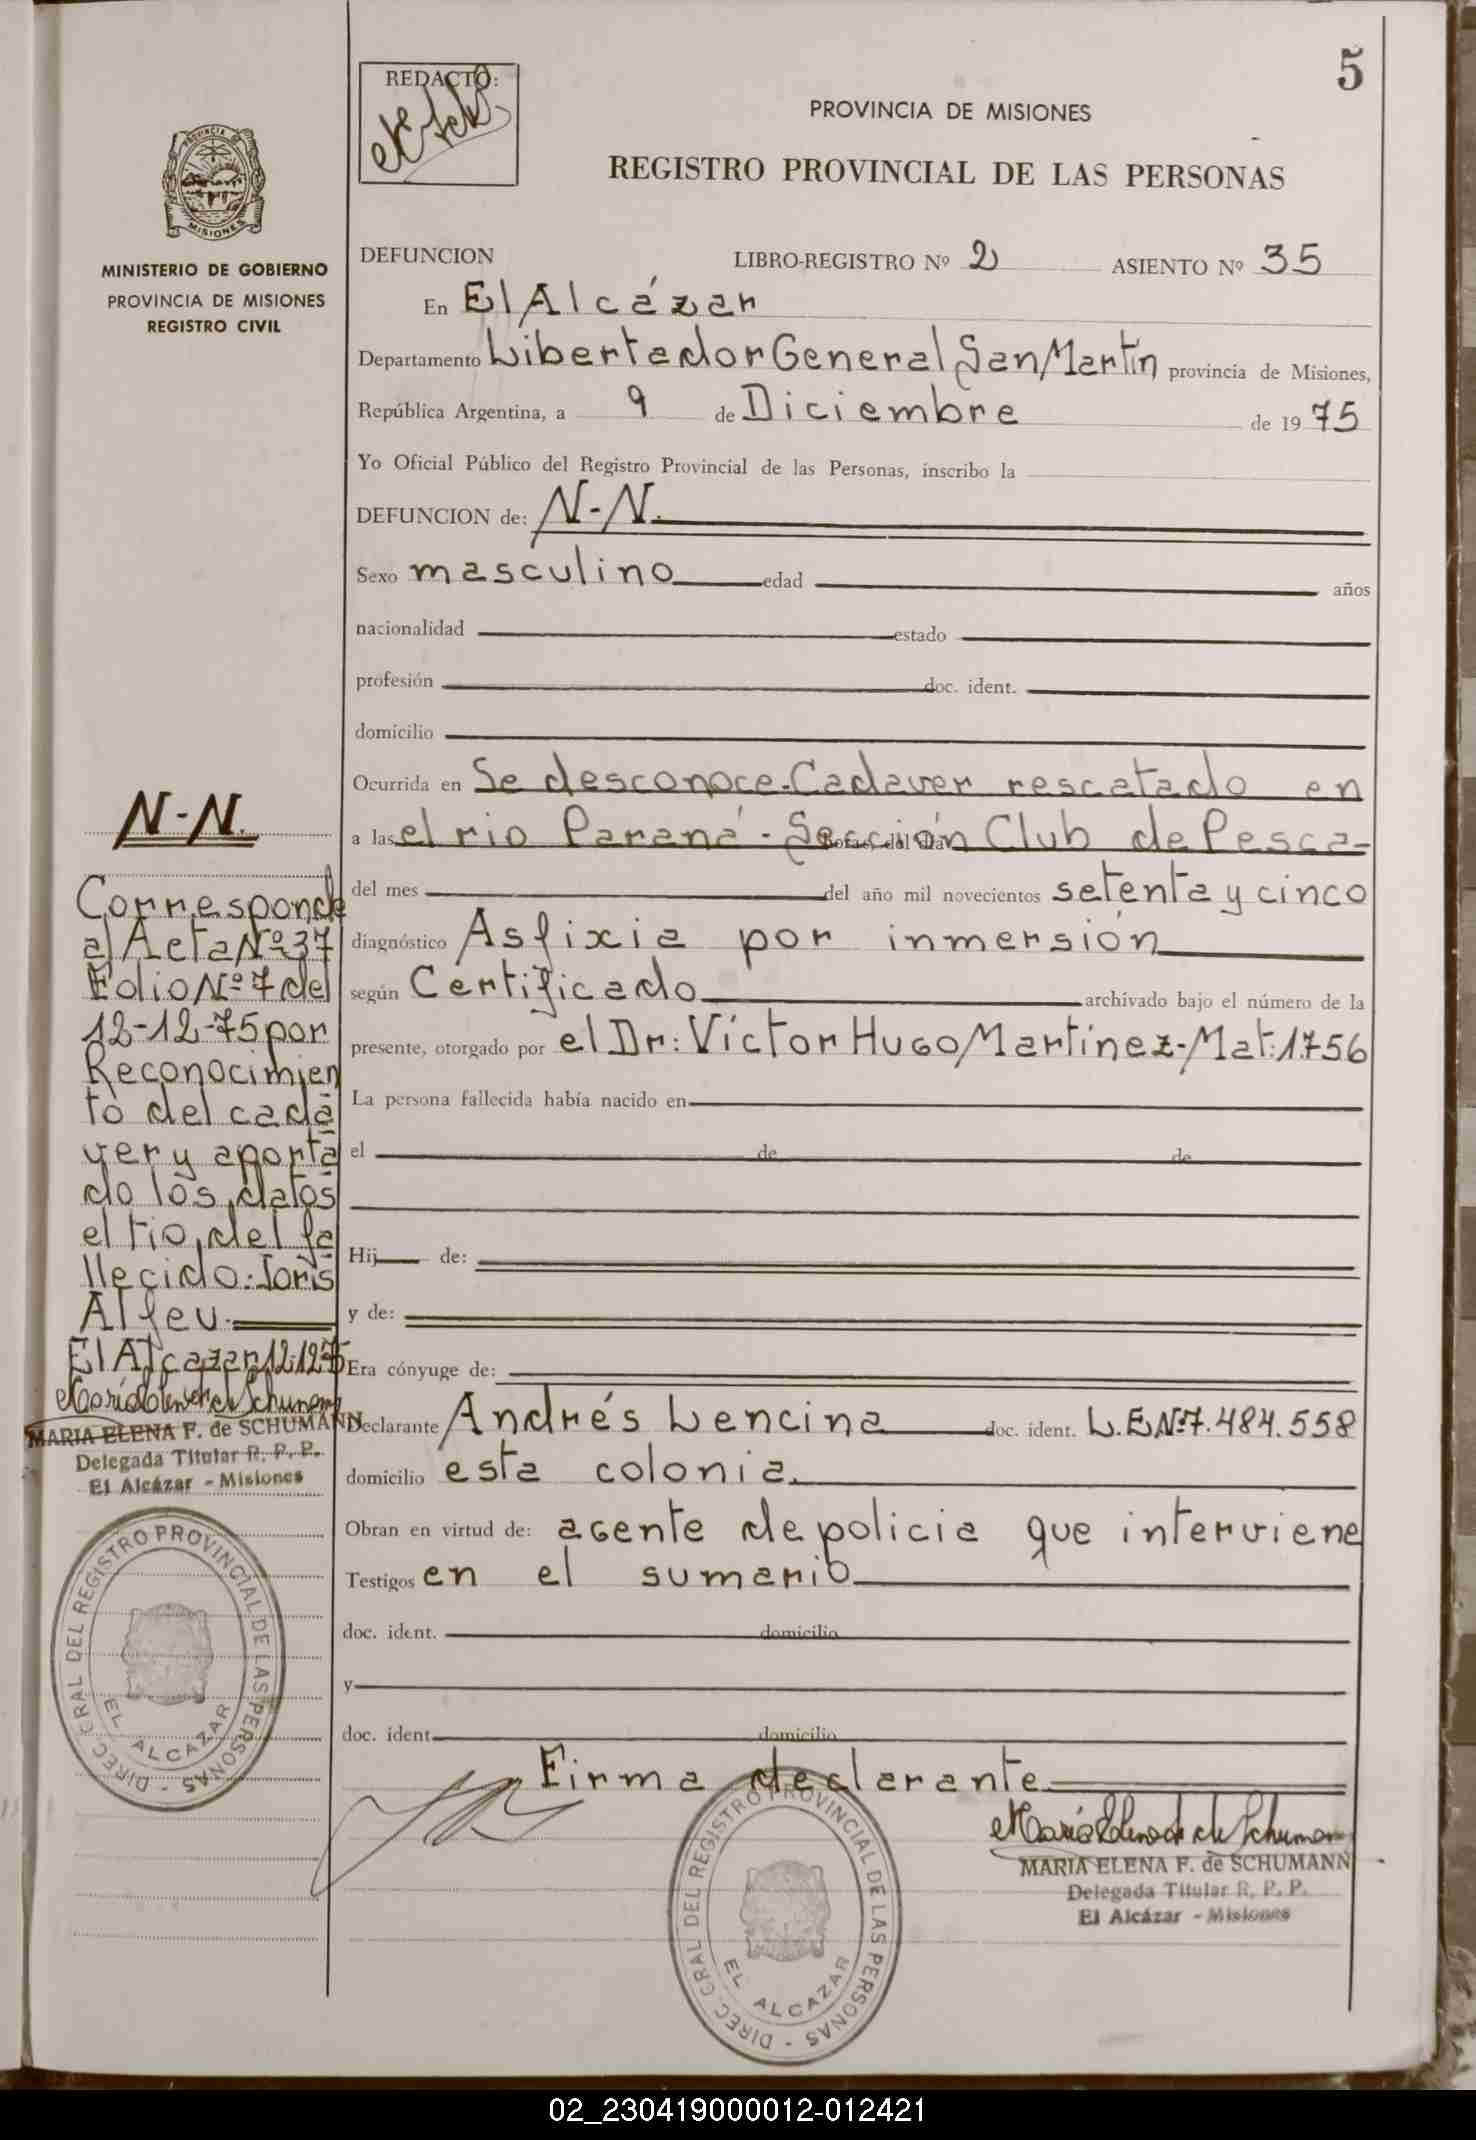 5
REDACTO:
PROVINCIA DE MISIONES
REGISTRO PROVINCIAL DE LAS PERSONAS
PROVINCIA
MISIONES
MINISTERIO DE GOBIERNO
PROVINCIA DE MISIONES
REGISTRO CIVIL
DEFUNCION LIBRO-REGISTRO Nº 2 ASIENTO Nº 35
En El Alcázar
Departamento Libertador General San Martín provincia de Misiones,
República Argentina, a 9 de Diciembre de 1975
Yo Oficial Público del Registro Provincial de las Personas, inscribo la
DEFUNCION de: N-N.
Sexo masculino edad años
nacionalidad estado
profesión doc. ident.
domicilio
Ocurrida en Se desconoce-Cadaver rescatado en
a las el rio Paraná - Sección Club de Pesca-
del mes del año mil novecientos setenta y cinco
diagnóstico Asfixia por inmersión
según Certificado archivado bajo el número de la
presente, otorgado por el Dr: Víctor Hugo Martínez-Mat:1756
La persona fallecida había nacido en
el de de
Hij de:
y de:
Era cónyuge de:
Declarante Andrés Lencina doc. ident. L.E.Nº7.484.558
domicilio esta colonia.
Obran en virtud de: agente de policia que interviene
Testigos en el sumario
doc. ident. domicilio
y
doc. ident. domicilio
Firma declarante
MARIA ELENA F. de SCHUMANN
Delegada Titular R. P. P.
El Alcázar - Misiones
DIREC. GRAL DEL REGISTRO PROVINCIAL DE LAS PERSONAS
EL ALCAZAR
N-N.
Corresponde
al Acta Nº37
Folio Nº 7 del
12-12-75 por
Reconocimien
to del cadá
ver y aporta
do los datos
el tio del fa
llecido: Joris
Alfeu.
El Alcazar, 12.12.75
MARIA ELENA F. de SCHUMANN
Delegada Titular R. P. P.
El Alcázar - Misiones
DIREC. GRAL DEL REGISTRO PROVINCIAL DE LAS PERSONAS
EL ALCAZAR
02_230419000012-012421